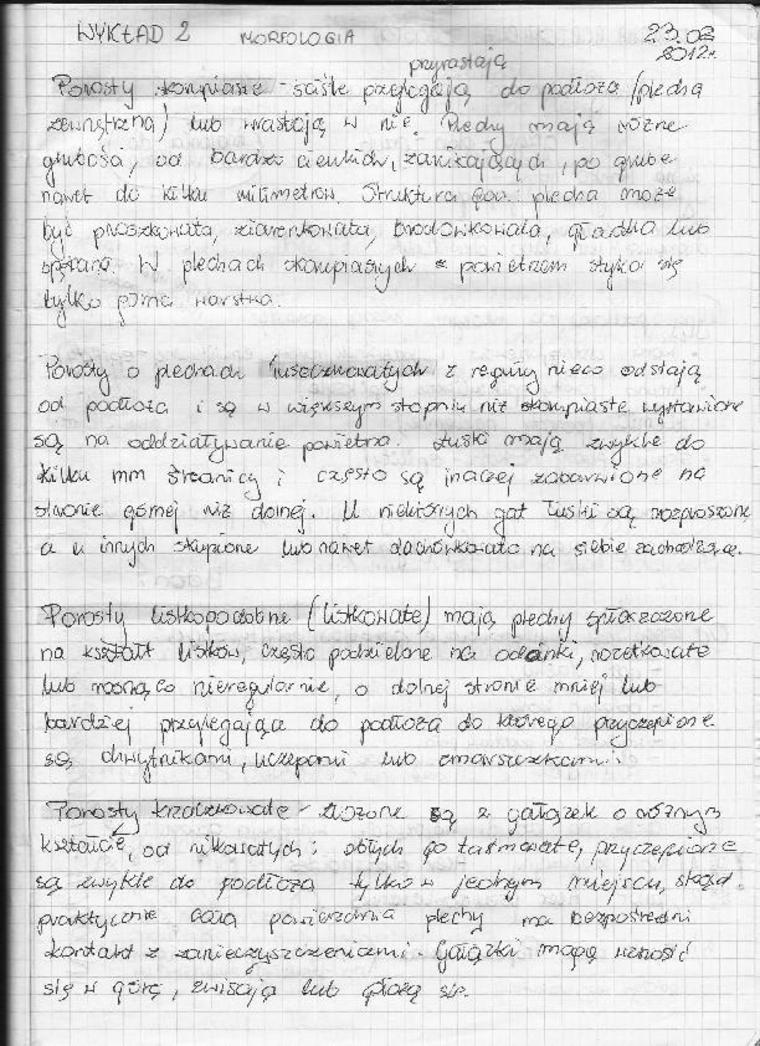 WYKŁAD 2 MORFOLOGIA 23.02
2012r.
przyrastają
Porosty skorupiaste - ściśle przylegają do podłoża (plecha
zewnętrzna) lub wrastają w nie. Plechy mają różne
grubości, od bardzo cienkich, zanikających, po grube
nawet do kilku milimetrów. Struktura pow. plecha może
być proszkowata, ziarenkowata, brodawkowata, gładka lub
spękana. W plechach skorupiastych z powietrzem styka się
tylko górna warstwa.
Porosty o plechach łuseczkowatych z reguły nieco odstają
od podłoża i są w większym stopniu niż skorupiaste wystawione
są na oddziaływanie powietrza. Łuski mają zwykle do
kilku mm średnicy i często są inaczej zabarwione na
stronie górnej niż dolnej. U niektórych gat łuski są rozproszone,
a u innych skupione lub nawet dachówkowato na siebie zachodzące.
Porosty listkopodobne (listkowate) mają plechy spłaszczone
na kształt listków, często podzielone na odcinki, rozetkowate
lub rosnące nieregularnie, o dolnej stronie mniej lub
bardziej przylegające do podłoża do którego przyczepione
są chwytnikami, uczepami lub zmarszczkami.
Porosty krzaczkowate - złożone są z gałązek o różnym
kształcie, od nitkowatych i obłych po taśmowate, przyczepione
są zwykle do podłoża tylko w jednym miejscu, skąd
praktycznie cała powierzchnia plechy ma bezpośredni
kontakt z zanieczyszczeniami. Gałązki mogą wznosić
się w górę, zwisają lub płożą się.